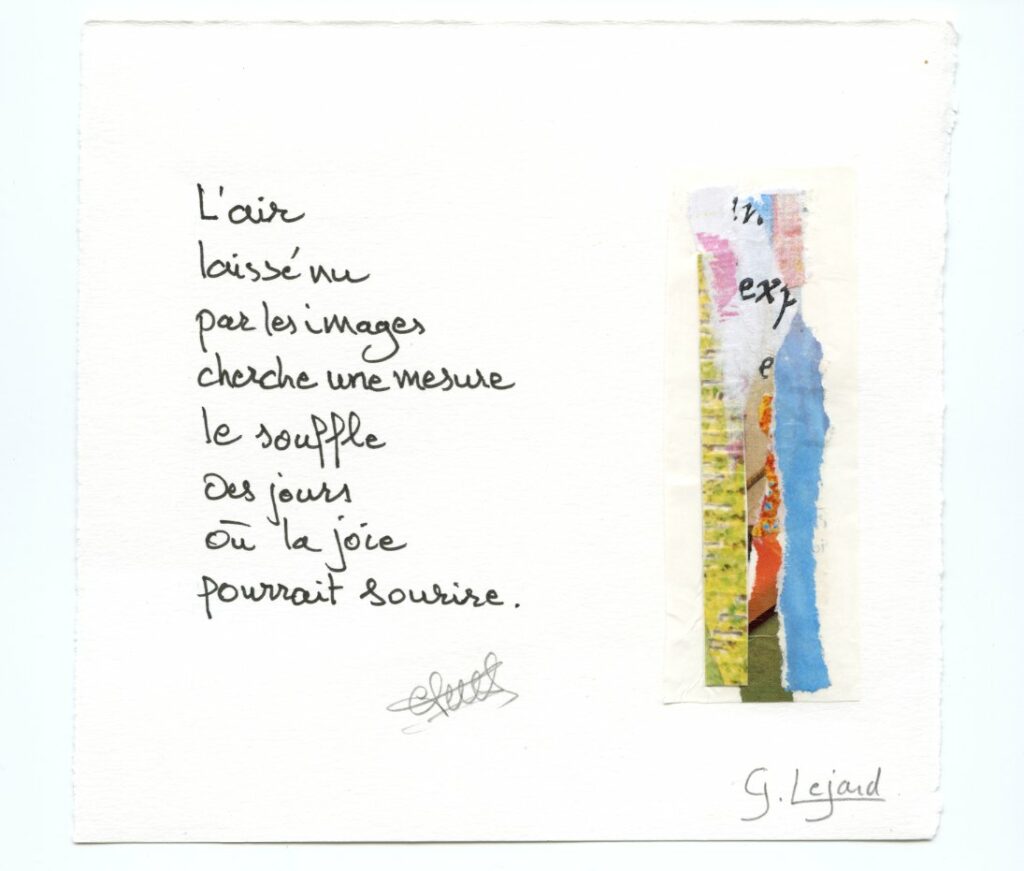 L'air
laissé nu
par les images
cherche une mesure
le souffle
des jours
où la joie
pourrait sourire.
exp
e
G. Lejard